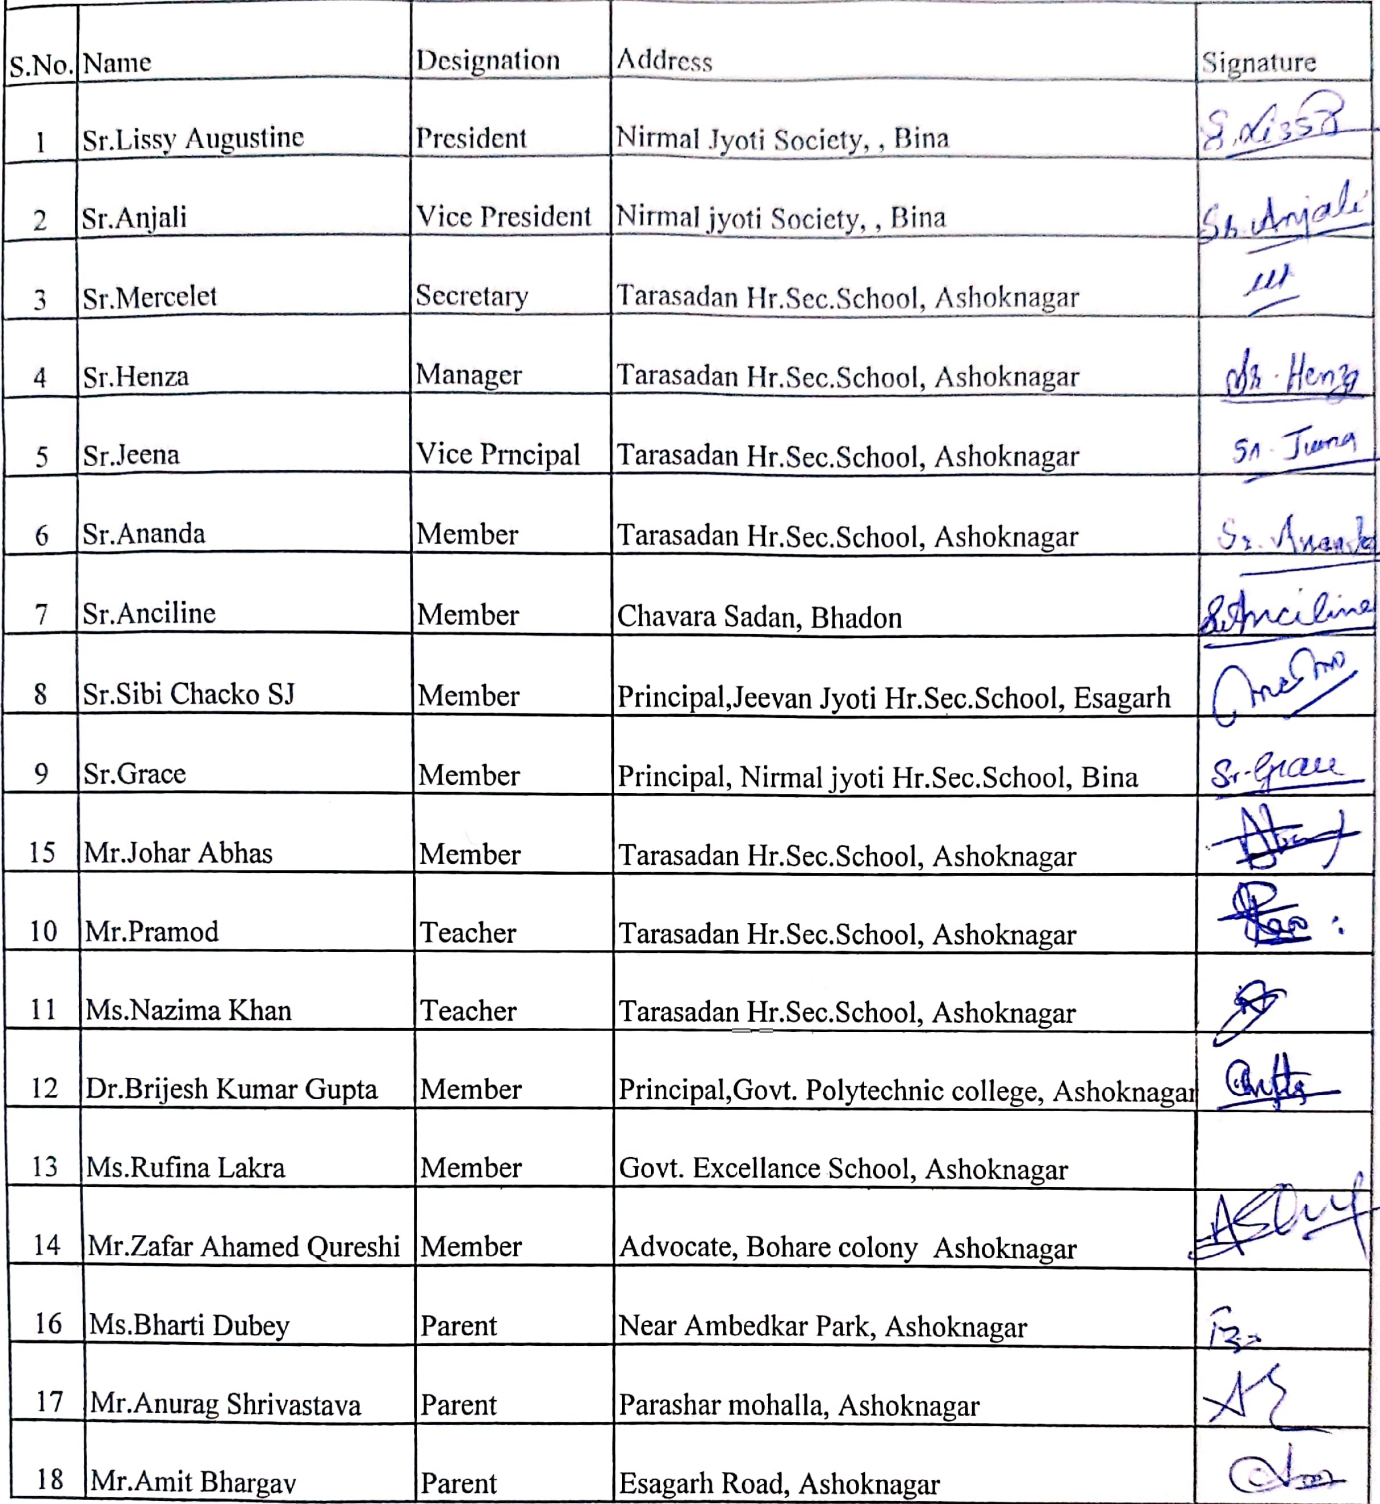 S.No. Name Designation Address Signature
1 Sr.Lissy Augustine President Nirmal Jyoti Society, , Bina S.Lissy
2 Sr.Anjali Vice President Nirmal jyoti Society, , Bina Sr. Anjali
3 Sr.Mercelet Secretary Tarasadan Hr.Sec.School, Ashoknagar
4 Sr.Henza Manager Tarasadan Hr.Sec.School, Ashoknagar Sr. Henza
5 Sr.Jeena Vice Prncipal Tarasadan Hr.Sec.School, Ashoknagar Sr. Jeena
6 Sr.Ananda Member Tarasadan Hr.Sec.School, Ashoknagar Sr. Ananda
7 Sr.Anciline Member Chavara Sadan, Bhadon Sr.Anciline
8 Sr.Sibi Chacko SJ Member Principal,Jeevan Jyoti Hr.Sec.School, Esagarh
9 Sr.Grace Member Principal, Nirmal jyoti Hr.Sec.School, Bina Sr.Grace
15 Mr.Johar Abhas Member Tarasadan Hr.Sec.School, Ashoknagar
10 Mr.Pramod Teacher Tarasadan Hr.Sec.School, Ashoknagar
11 Ms.Nazima Khan Teacher Tarasadan Hr.Sec.School, Ashoknagar
12 Dr.Brijesh Kumar Gupta Member Principal,Govt. Polytechnic college, Ashoknagar
13 Ms.Rufina Lakra Member Govt. Excellance School, Ashoknagar
14 Mr.Zafar Ahamed Qureshi Member Advocate, Bohare colony Ashoknagar
16 Ms.Bharti Dubey Parent Near Ambedkar Park, Ashoknagar
17 Mr.Anurag Shrivastava Parent Parashar mohalla, Ashoknagar
18 Mr.Amit Bhargav Parent Esagarh Road, Ashoknagar